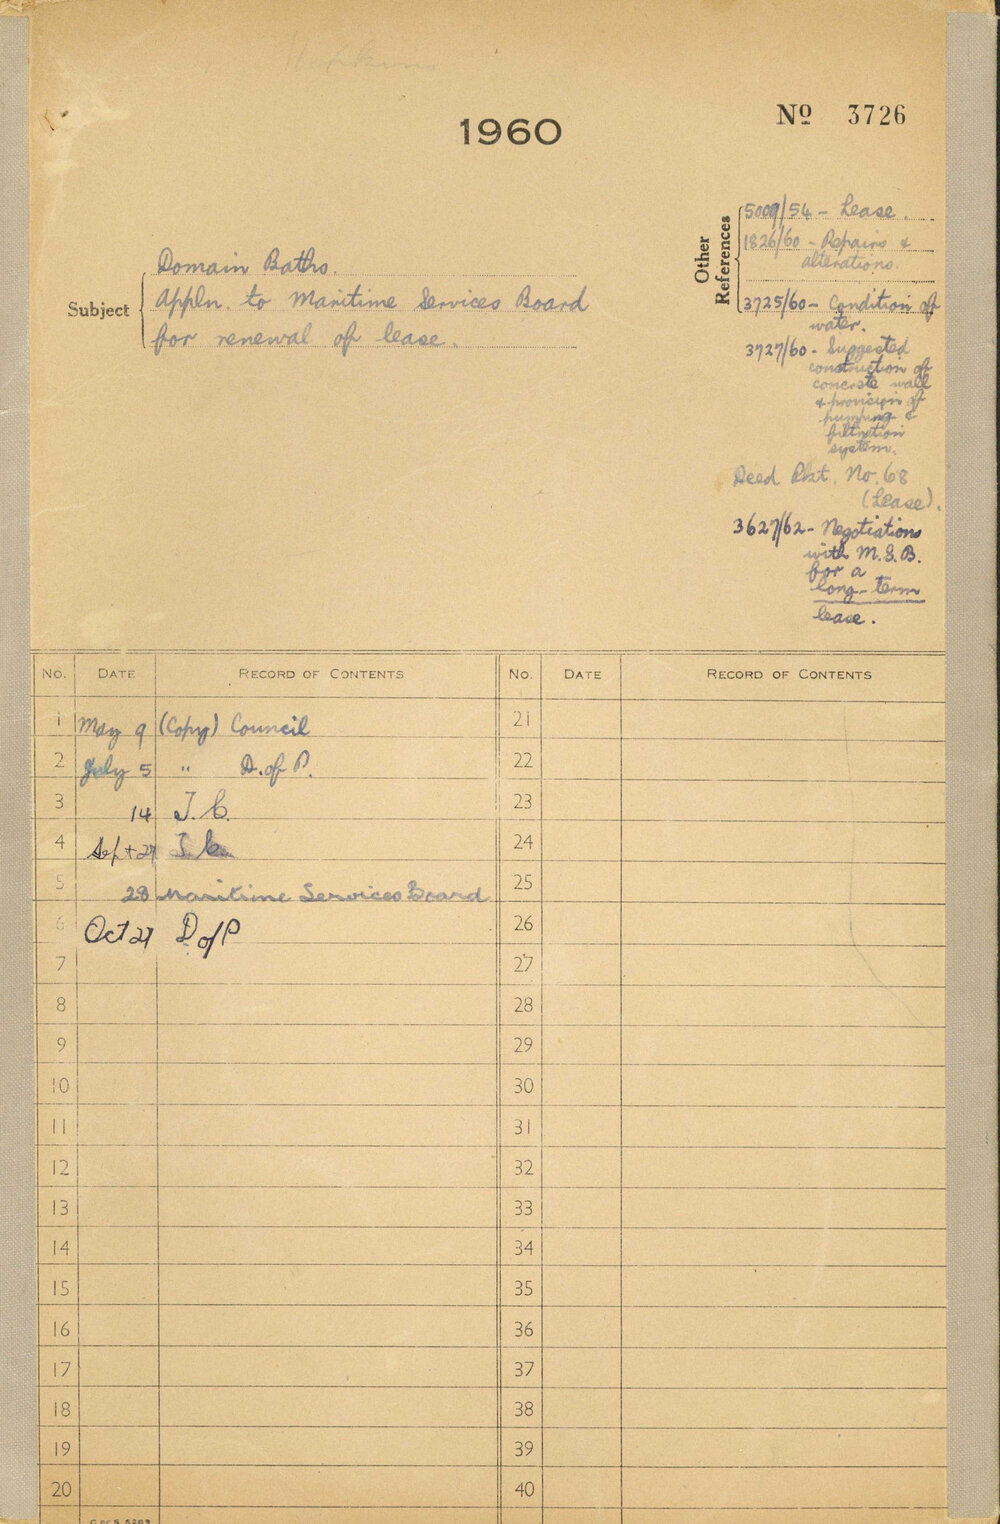 1960
Nº 3726
Subject
Domain Baths.
Appln. to Maritime Services Board
for renewal of lease.
Other
References
5009/54 - Lease.
1826/60 - Repairs &
alterations.
3725/60 - Condition of
water.
3727/60 - Suggested
construction of
concrete wall
& provision of
pumping &
filtration
system.
Deed Pkt. No. 68
(Lease).
3627/62 - Negotiations
with M.S.B.
for a
long-term
lease.
No. DATE RECORD OF CONTENTS No. DATE RECORD OF CONTENTS
1 May 9 (Copy) Council 21
2 July 5 " D. of P. 22
3 14 T.C. 23
4 Sept 27 T.C. 24
5 28 Maritime Services Board 25
6 Oct 27 D of P 26
7 27
8 28
9 29
10 30
11 31
12 32
13 33
14 34
15 35
16 36
17 37
18 38
19 39
20 40